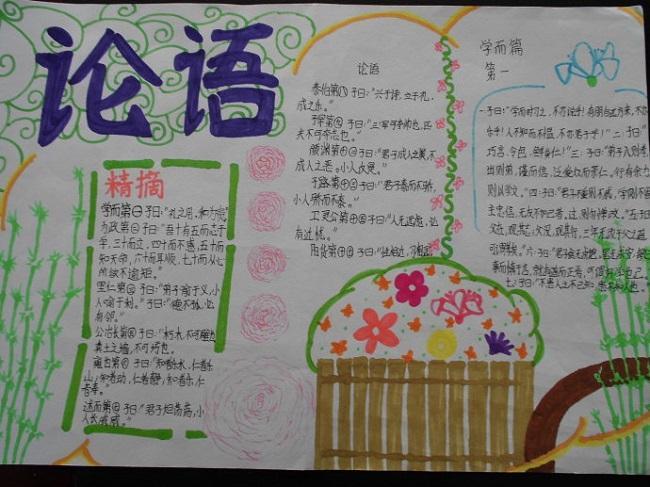 论语
精摘
学而第一 子曰:"礼之用,和为贵。"
为政第二 子曰:"吾十有五而志于
学,三十而立,四十而不惑,五十而
知天命,六十而耳顺,七十而从心
所欲不逾矩。"
里仁第四 子曰:"君子喻于义,小
人喻于利。" 子曰:"德不孤,必
有邻。"
公冶长第五 子曰:"朽木不可雕也
粪土之墙,不可杇也。
雍也第六 子曰:"知者乐水,仁者乐
山;知者动,仁者静;知者乐,仁
者寿。"
述而第七 子曰:"君子坦荡荡,小
人长戚戚。"
论语
泰伯第八 子曰:"兴于诗,立于礼,
成之乐。"
子罕第九 子曰:"三军可夺帅也,匹
夫不可夺志也。"
颜渊第十二 子曰:"君子成人之美,不
成人之恶。小人反是。"
子路第十三 子曰:"君子泰而不骄,
小人骄而不泰。"
卫灵公第十五 子曰:"人无远虑,必
有近忧。"
阳货第十七 子曰:"性相近,习相远
学而篇
第一
一·子曰:"学而时习之,不亦说乎!有朋自远方来,不亦
乐乎!人不知而不愠,不亦君子乎!" 二·子曰:"
巧言,令色,鲜矣仁!" 三·子曰:"弟子入则孝,
出则弟,谨而信,泛爱众而亲仁。行有余力
则以学文。"四·子曰:"君子不重则不威,学则不固
主忠信,无友不如己者。过,则勿惮改。"五·子曰
父在,观其志;父没,观其行;三年无改于父之道
可谓孝矣。"六·子曰:"君子食无求饱,居无求安,敏于
事而慎于言,就有道而正焉,可谓好学也已。"
七·子曰:"不患人之不己知,患不知人也。"